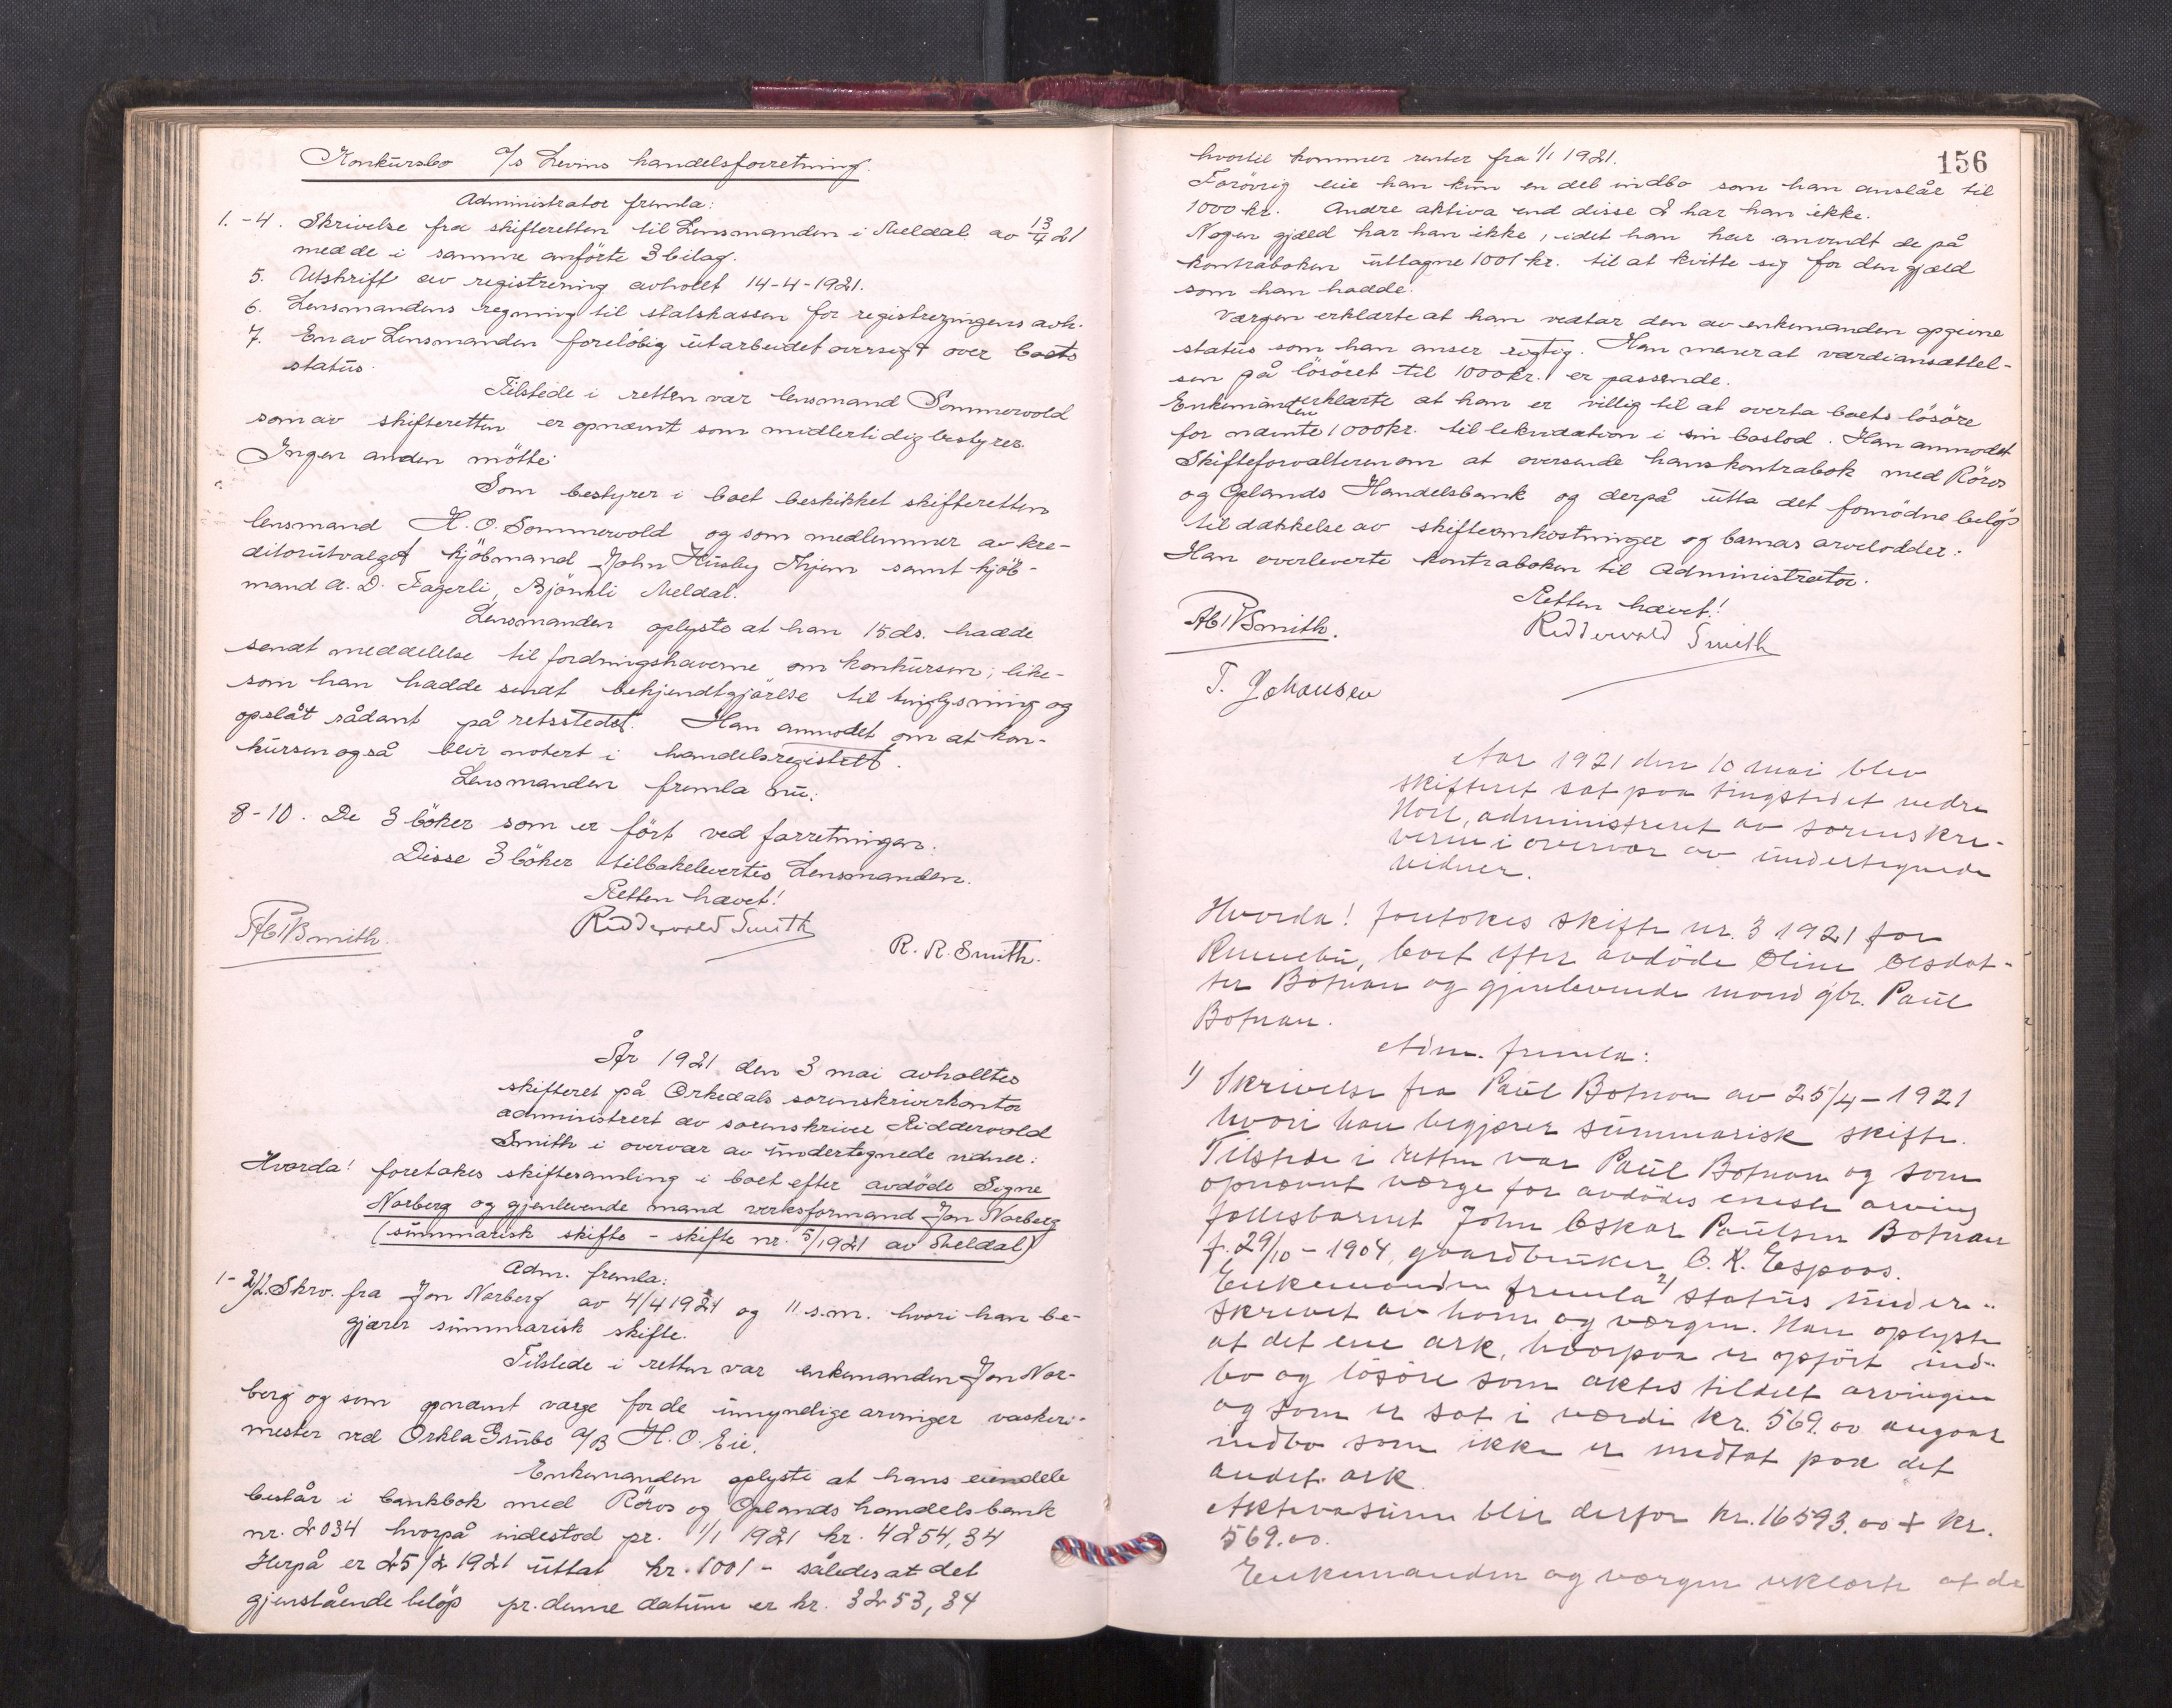 Konkursbo A/S Levins handelsforretning.
Administrator fremla:
1.-4. Skrivelse fra skifteretten til Lensmanden i Meldal av 13/4 21
medde i samme anförte 3 bilag.
5. Utskrift av registrering avholdt 14-4-1921.
6. Lensmandens regning til statskassen for registreringens avh.
7. En av Lensmanden foreløbig utarbeidet oversigt over boets
status.
Tilstede i retten var lensmand Sommervold
som av skifteretten er opnævnt som midlertidig bestyrer.
Ingen anden mötte.
Som bestyrer i boet beskikket skifteretten
lensmand H. O. Sommervold og som medlemmer av kre-
ditorutvalget kjöbmand John Husby Hjem samt kjöb-
mand A. D. Fagerli, Bjömli Meldal.
Lensmanden oplyste at han 15 ds. hadde
sendt meddelelse til fordringshaverne om konkursen; like-
som han hadde sendt bekjendtgjörelse til tinglysning og
opslåt sådant på retsstedet. Han anmodet om at kon-
kursen også blir notert i handelsregistret.
Lensmanden fremla nu:
8-10. De 3 böker som er fört ved forretningen.
Disse 3 böker tilbakelevertes Lensmanden.
Retten hævet!
Ridderwold Smith
R. R. Smith.
År 1921 den 3 mai avholdtes
skifteret på Orkedals sorenskriverkontor
administrert av sorenskriver Ridderwold
Smith i overvær av undertegnede vidner:
Hvorda! foretakes skiftesamling i boet efter avdöde Signe
Norberg og gjenlevende mand verksformand Jon Norberg
(summarisk skifte - skifte nr. 5/1921 av Meldal)
Adm. fremla:
1-2/2. Skrv. fra Jon Norberg av 4/4 1921 og 11 s.m. hvori han be-
gjærer summarisk skifte.
Tilstede i retten var enkemanden Jon Nor-
berg og som opnævnt værge for de umyndige arvinger vaskeri-
mester ved Orkla Grube A/B H. O. Eie.
Enkemanden oplyste at hans eiendele
består i bankbok med Röros og Oplands handelsbank
nr. 2034 hvorpå indestod pr. 1/1 1921 kr. 4254,34
Herpå er 25/2 1921 uttat kr. 1001 - således at det
gjenstående belöp pr. denne datum er kr. 3253,34
156
hvortil kommer renter fra 1/1 1921.
Forövrig eier han kun en del indbo som han anslår til
1000 kr. Andre aktiva end disse 2 har han ikke.
Nogen gjæld har han ikke, idet han har anvendt de på
kontraboken uttagne 1001 kr. til at kvitte sig for den gjæld
som han hadde.
Værgen erklærte at han vedtar den av enkemanden opgivne
status som han anser rigtig. Han mener at værdiansættel-
sen på lösöret til 1000 kr. er passende.
Enkemanden erklærte at han er villig til at overta boets lösöre
for nævnte 1000 kr. til likvidation i sin boslod. Han anmodet
Skifteforvalteren om at oversende hans kontrabok med Röros
og Oplands Handelsbank og derpå utta det fornödne belöp
til dækkelse av skifteomkostninger og barnas arvelodder.
Han overleverte kontraboken til Administrator.
Retten hævet!
Ridderwold Smith
T. Johansen
Aar 1921 den 10 mai blev
skifteret sat paa tingstedet nedre
Hoel, administreret av sorenskri-
veren i overvær av undertegnede
vidner.
Hvorda! foretokes skifte nr. 3 1921 for
Rennebu, boet efter avdöde Oline Olsdat-
ter Botnan og gjenlevende mand gbr. Paul
Botnan.
Adm. fremla:
1) Skrivelse fra Paul Botnan av 25/4-1921
hvori han begjærer summarisk skifte.
Tilstede i retten var Paul Botnan og som
opnævnt værge for avdödes eneste arving
fællesbarnet John Oskar Paulsen Botnan
f. 29/10-1904, gaardbruker O. K. Espaas.
Enkemanden fremla 2) status under-
skrevet av ham og værgen. Han oplyste
at det ene ark, hvorpaa er opfört ind-
bo og lösöre som aktes tildelt arvingen
og som er sat i værdi kr. 569.00 angaar
indbo som ikke er medtat paa det
andet ark.
Aktivasum blir derfor kr. 16593.00 + kr.
569.00.
Enkemanden og værgen erklærte at de